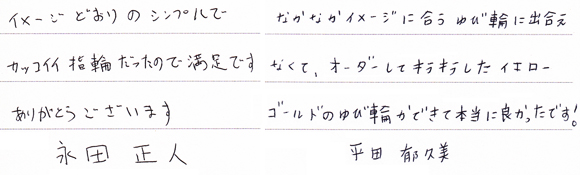 イメージどおりのシンプルで
カッコイイ指輪だったので満足です
ありがとうございます
永田 正人
なかなかイメージに合うゆび輪に出合え
なくて、オーダーしてキラキラしたイエロー
ゴールドのゆび輪ができて本当に良かったです!
平田 郁久美